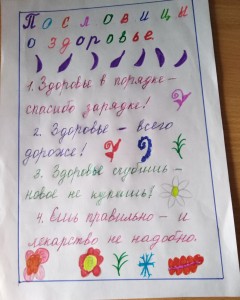 Пословицы
о здоровье
1. Здоровье в порядке –
спасибо зарядке!
2. Здоровье – всего
дороже!
3. Здоровье сгубишь –
новое не купишь!
4. Ешь правильно – и
лекарство не надобно.